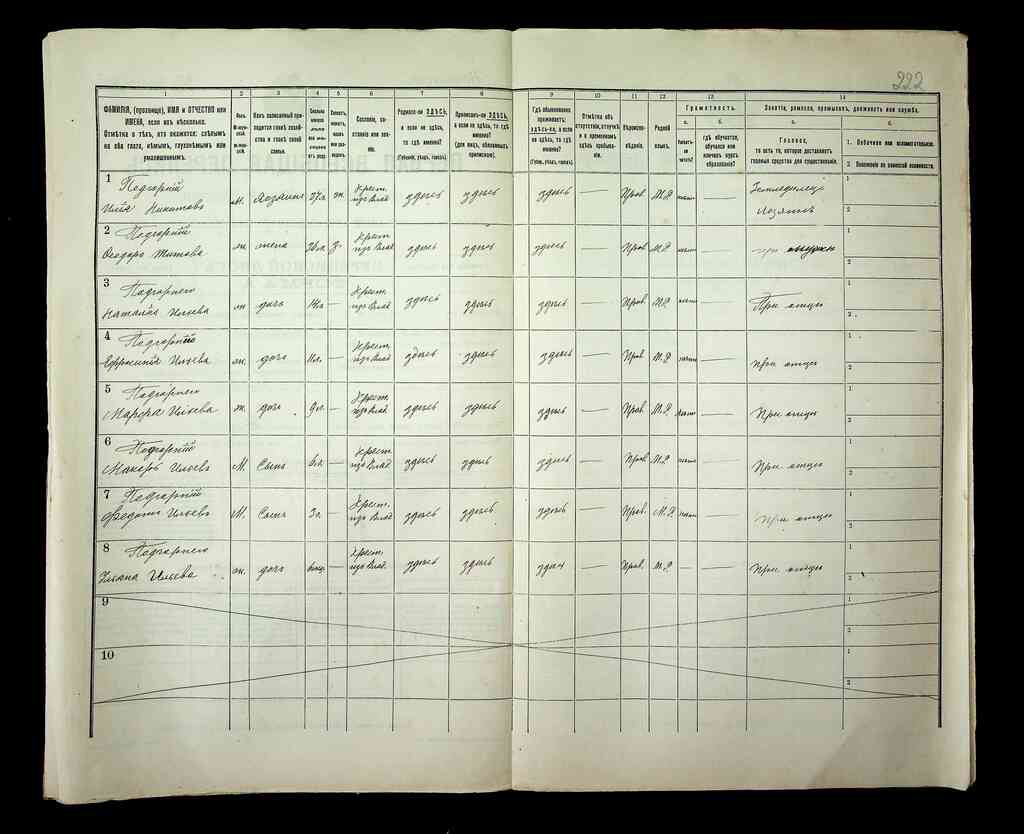 222
1 2 3 4 5 6 7 8 9 10 11 12 13 14
ФАМИЛІЯ, (прозвище), ИМЯ и ОТЧЕСТВО или
ИМЕНА, если ихъ нѣсколько.
Отмѣтка о тѣхъ, кто окажется: слѣпымъ
на оба глаза, нѣмымъ, глухонѣмымъ или
умалишеннымъ.
Полъ.
М-мужской.
Ж-женскій.
Какъ записанный приходится главѣ хозяйства и главѣ своей семьи.
Сколько минуло лѣтъ или мѣсяцевъ отъ роду.
Сословіе, состояніе или званіе.
Родился-ли ЗДѢСЬ,
а если не здѣсь,
то гдѣ именно?
(Губернія, уѣздъ, городъ).
Приписанъ-ли ЗДѢСЬ,
а если не здѣсь, то гдѣ
именно?
(для лицъ, обязанныхъ
припискою).
Гдѣ обыкновенно
проживаетъ:
здѣсь-ли, а если
не здѣсь, то гдѣ
именно?
(Губерн., уѣздъ, городъ).
Отмѣтка объ
отсутствіи, отлучкѣ
и о временномъ
здѣсь пребываніи.
Вѣроисповѣданіе.
Родной языкъ.
Грамотность.
а.
Умѣетъ-ли читать?
б.
гдѣ обучается,
обучался или
кончилъ курсъ
образованія?
Занятіе, ремесло, промыселъ, должность или служба.
а.
Главное,
то есть то, которое доставляетъ
главныя средства для существованія.
б.
1. Побочное или вспомогательное.
2. Положеніе по воинской повинности.
1 Подгорній
Илія Никитовъ м. хозяинъ 37л. ж. Крест. изъ влад. здѣсь здѣсь здѣсь — Прав. М.Р. — Земледѣлецъ 1
хозяинъ 2
2 Подгорній
Феодора Титова ж. жена Крест. изъ влад. здѣсь здѣсь здѣсь — Прав. М.Р. — при 1
2
3 Подгорнего
Наталія Ильева ж. дочь 14л. — Крест. изъ влад. здѣсь здѣсь здѣсь — Прав. М.Р. — При отцѣ 1
2
4 Подгорній
Ефросинія Ильева ж. дочь 11л. — Крест. изъ влад. здѣсь здѣсь здѣсь — Прав. М.Р. — При отцѣ 1
2
5 Подгорнего
Марфа Ильева ж. дочь 9л. — Крест. изъ влад. здѣсь здѣсь здѣсь — Прав. М.Р. — При отцѣ 1
2
6 Подгорній
Макаръ Ильевъ М. Сынъ 6л. — Крест. изъ влад. здѣсь здѣсь здѣсь — Прав. М.Р. — При отцѣ 1
2
7 Подгорній
Федотъ Ильевъ М. Сынъ 3л. — Крест. изъ влад. здѣсь здѣсь здѣсь — Прав. М.Р. — При отцѣ 1
2
8 Подгорнего
Ульяна Ильева ж. дочь — Крест. изъ влад. здѣсь здѣсь здѣсь — Прав. М.Р. — — При отцѣ 1
2
9 1
2
10 1
2